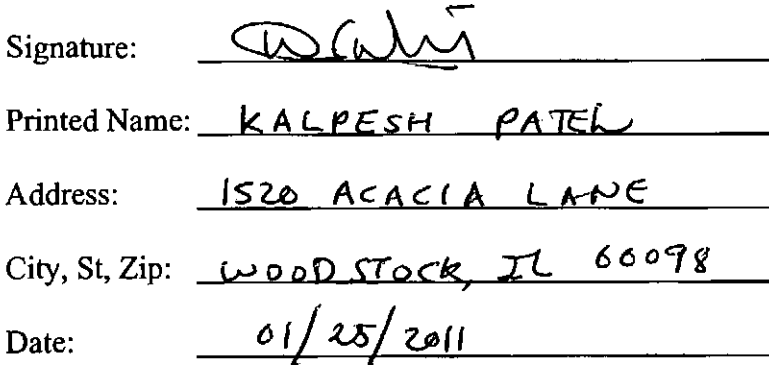 Signature:
Printed Name: KALPESH PATEL
Address: 1520 ACACIA LANE
City, St, Zip: WOODSTOCK, IL 60098
Date: 01/25/2011